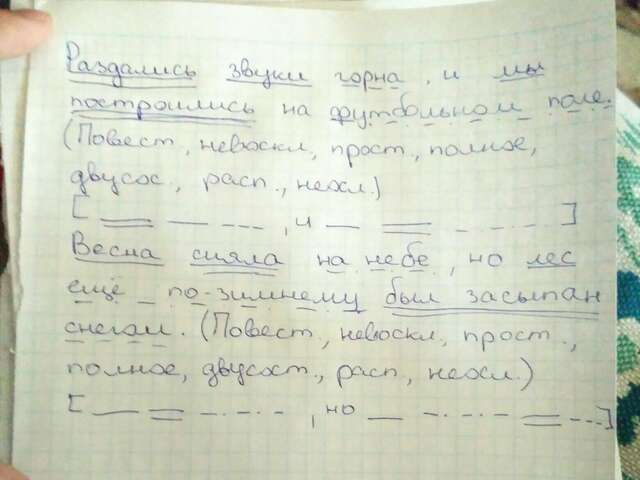 Раздались звуки горна, и мы
построились на футбольном поле.
(Повест., невоскл., прост., полное,
двусос., расп., неосл.)
[ , и ]
Весна сияла на небе, но лес
ещё по-зимнему был засыпан
снегом. (Повест., невоскл., прост.,
полное, двусост., расп., неосл.)
[ , но ]